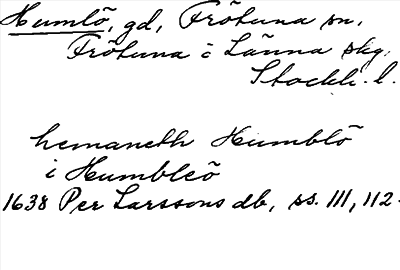 Humlö, gd, Frötuna sn,
Frötuna i Länna skg.
Stockh. l.
hemaneth Humblö
i Humbleö
1638 Per Larssons db, ss. 111, 112.